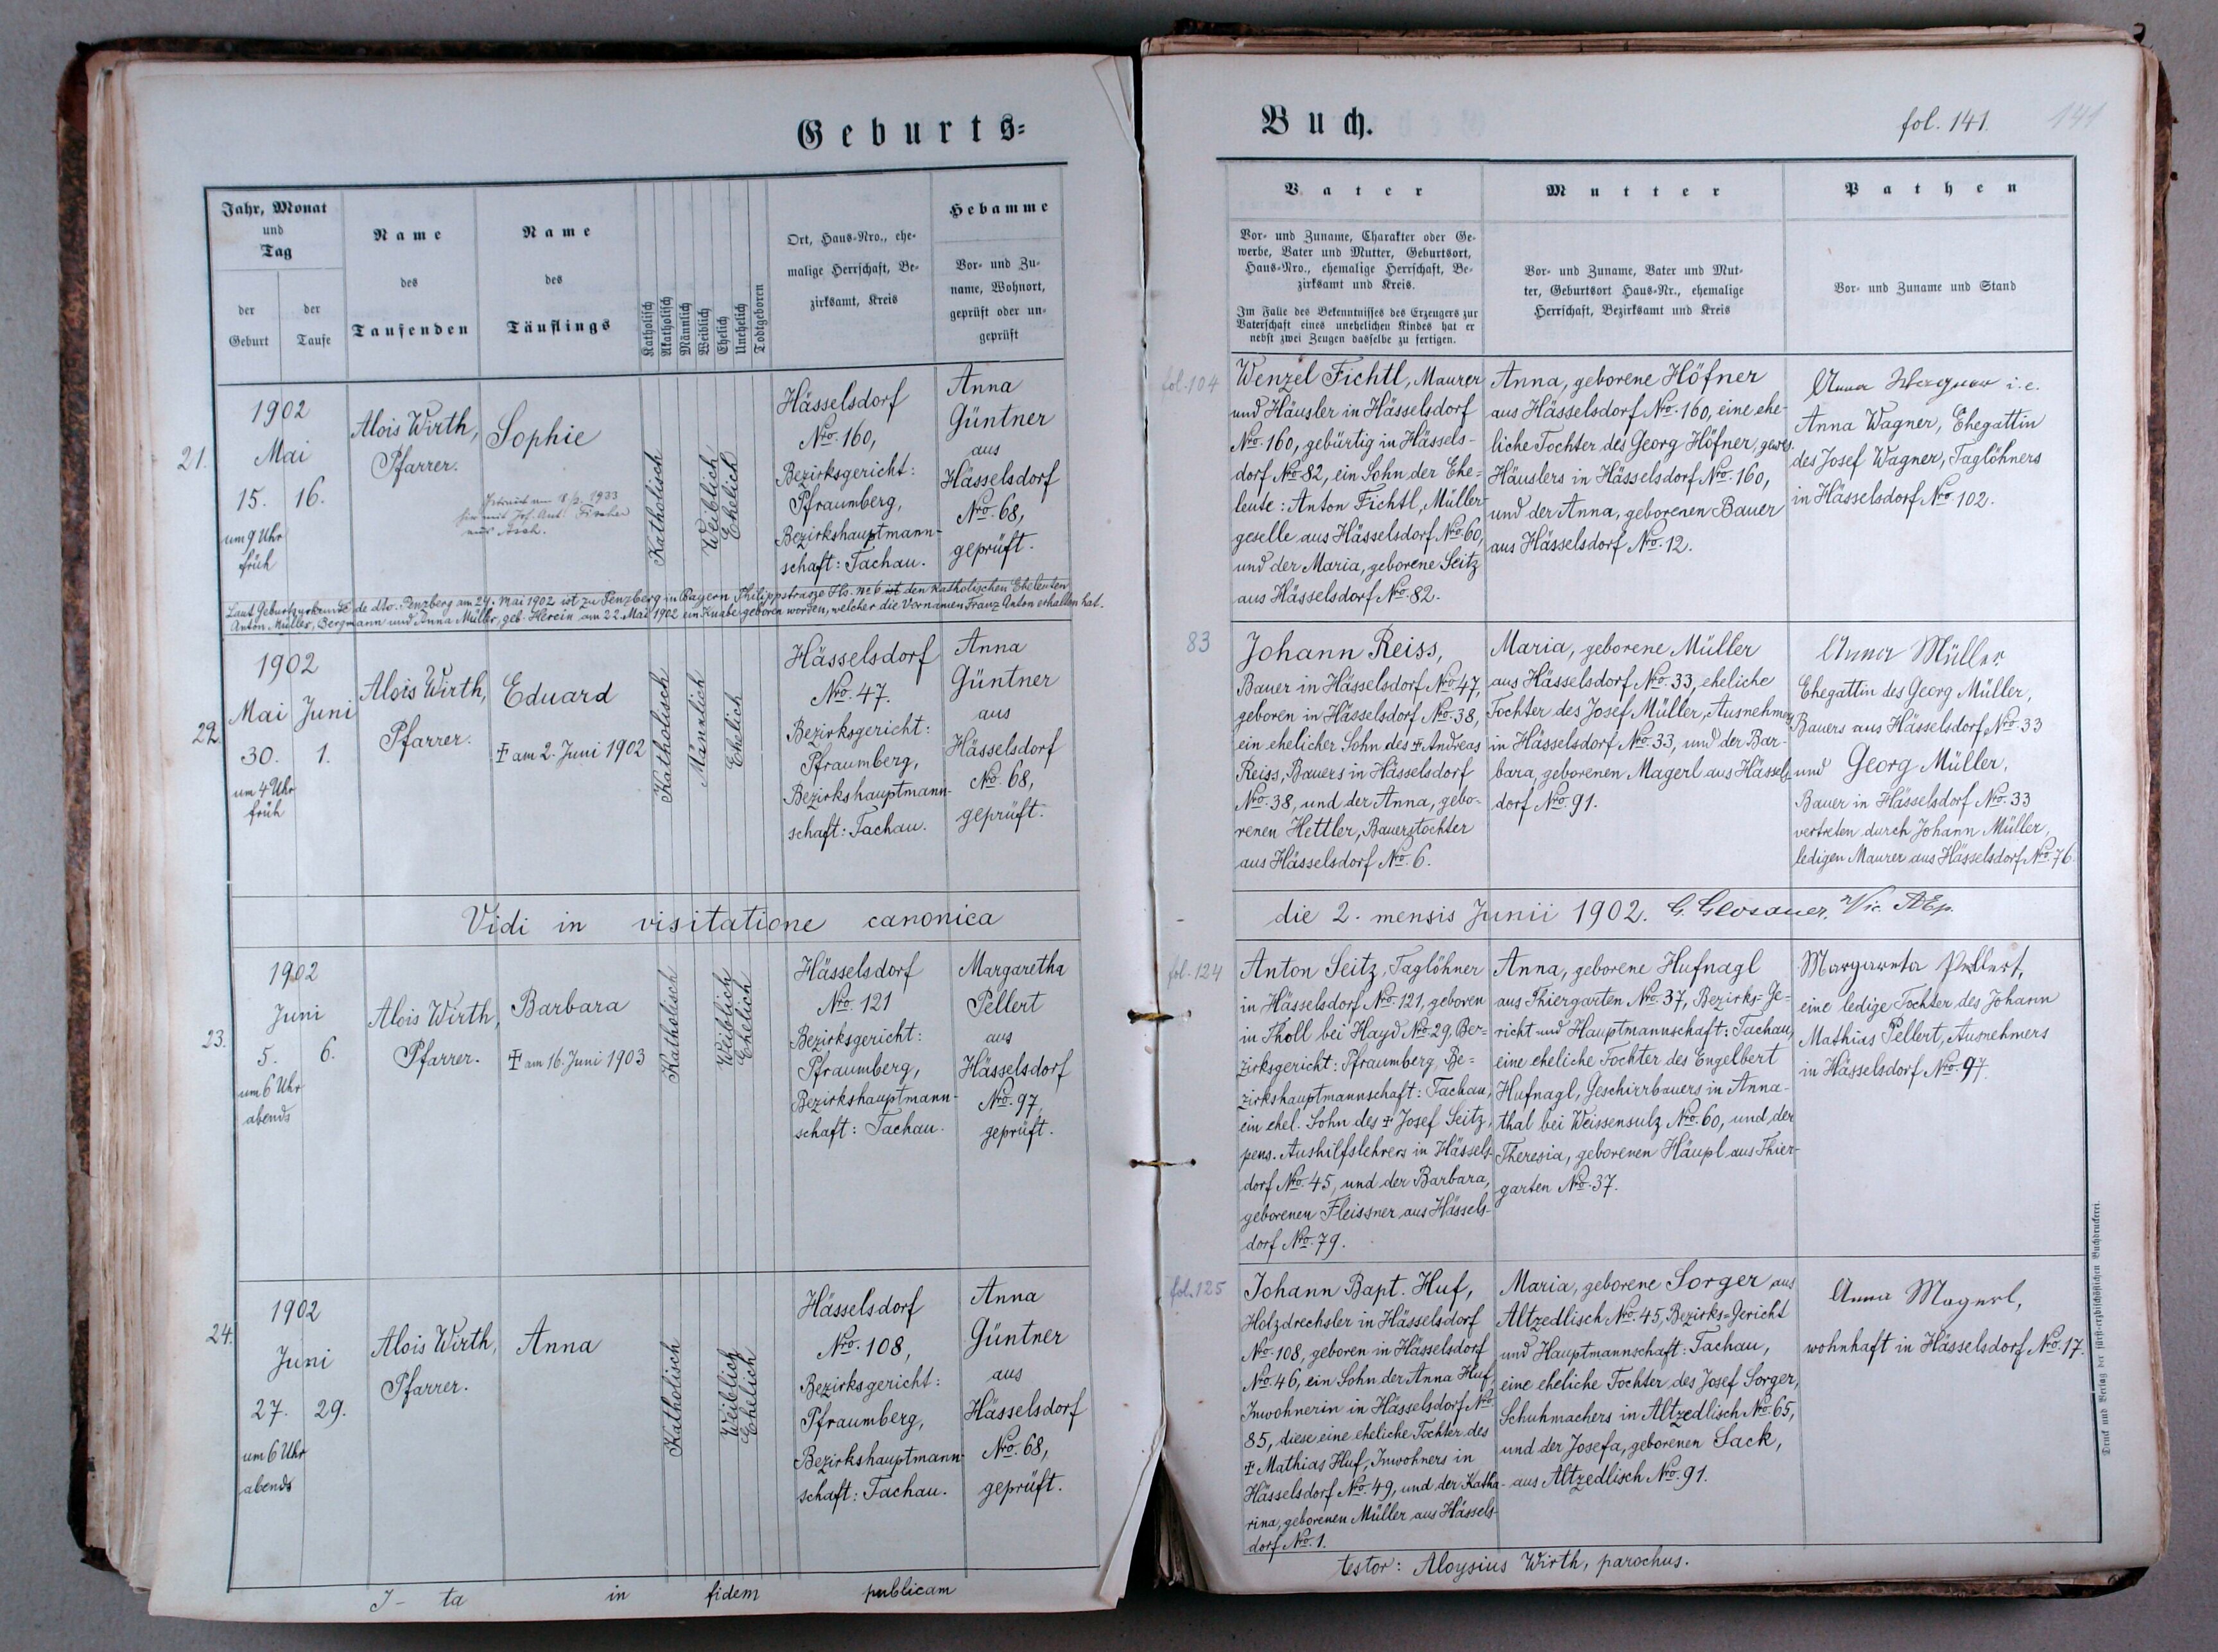 Geburts=
Jahr, Monat
und
Tag
der
Geburt
der
Taufe
Name
des
Taufenden
Name
des
Täuflings
Katholisch
Akatholisch
Männlich
Weiblich
Ehelich
Unehelich
Todtgeboren
Ort, Haus-Nro., ehe-
malige Herrschaft, Be-
zirksamt, Kreis
Hebamme
Vor- und Zu-
name, Wohnort,
geprüft oder un-
geprüft
21.
1902
Mai
15. 16.
um 9 Uhr
früh
Alois Wirth,
Pfarrer.
Sophie
Getraut am 1933
hier mit Jos. Ant. Fischer
aus Asch.
Katholisch
Weiblich
Ehelich
Hässelsdorf
Nro. 160,
Bezirksgericht:
Pfraumberg,
Bezirkshauptmann-
schaft: Tachau.
Anna
Güntner
aus
Hässelsdorf
Nro. 68,
geprüft.
Laut Geburtsurkunde de dto. Penzberg am 24. Mai 1902 ist zu Penzberg in Bayern Philippstrasse Hs. No 6 ist den katholischen Eheleuten
Anton Müller, Bergmann und Anna Müller, geb. Herein am 22. Mai 1902 ein Knabe geboren worden, welcher die Vornamen Franz Anton erhalten hat.
22.
1902
Mai Juni
30. 1.
um 4 Uhr
früh
Alois Wirth,
Pfarrer.
Eduard
✝ am 2. Juni 1902
Katholisch
Männlich
Ehelich
Hässelsdorf
Nro. 47.
Bezirksgericht:
Pfraumberg,
Bezirkshauptmann-
schaft: Tachau.
Anna
Güntner
aus
Hässelsdorf
No. 68,
geprüft.
Vidi in visitatione canonica
23.
1902
Juni
5. 6.
um 6 Uhr
abends
Alois Wirth,
Pfarrer.
Barbara
✝ am 16. Juni 1903
Katholisch
Weiblich
Ehelich
Hässelsdorf
Nro. 121
Bezirksgericht:
Pfraumberg,
Bezirkshauptmann-
schaft: Tachau.
Margaretha
Pellert
aus
Hässelsdorf
Nro. 97,
geprüft.
24.
1902
Juni
27. 29.
um 6 Uhr
abends
Alois Wirth,
Pfarrer.
Anna
Katholisch
Weiblich
Ehelich
Hässelsdorf
Nro. 108,
Bezirksgericht:
Pfraumberg,
Bezirkshauptmann-
schaft: Tachau.
Anna
Güntner
aus
Hässelsdorf
Nro. 68,
geprüft.
I- ta in fidem publicam
Buch.
fol. 141.
141
Vater
Vor- und Zuname, Charakter oder Ge-
werbe, Vater und Mutter, Geburtsort,
Haus-Nro., ehemalige Herrschaft, Be-
zirksamt und Kreis.
Im Falle des Bekenntnisses des Erzeugers zur
Vaterschaft eines unehelichen Kindes hat er
nebst zwei Zeugen dasselbe zu fertigen.
Mutter
Vor- und Zuname, Vater und Mut-
ter, Geburtsort Haus-Nr., ehemalige
Herrschaft, Bezirksamt und Kreis
Pathen
Vor- und Zuname und Stand
fol. 104
Wenzel Fichtl, Maurer
und Häusler in Hässelsdorf
Nro. 160, gebürtig in Hässels-
dorf Nro. 82, ein Sohn der Ehe-
leute: Anton Fichtl, Müller-
geselle aus Hässelsdorf Nro. 60,
und der Maria, geborene Seitz
aus Hässelsdorf Nro. 82.
Anna, geborene Höfner
aus Hässelsdorf Nro. 160, eine ehe-
liche Tochter des Georg Höfner, gewes.
Häuslers in Hässelsdorf Nro. 160,
und der Anna, geborenen Bauer
aus Hässelsdorf Nro. 12.
Anna Wagner i.e.
Anna Wagner, Ehegattin
des Josef Wagner, Taglöhners
in Hässelsdorf Nro. 102.
83
Johann Reiss,
Bauer in Hässelsdorf Nro. 47,
geboren in Hässelsdorf Nro. 38,
ein ehelicher Sohn des ✝ Andreas
Reiss, Bauers in Hässelsdorf
Nro. 38, und der Anna, gebo-
renen Hettler, Bauerstochter
aus Hässelsdorf Nro. 6.
Maria, geborene Müller
aus Hässelsdorf Nro. 33, eheliche
Tochter des Josef Müller, Ausnehmers
in Hässelsdorf Nro. 33, und der Bar-
bara, geborenen Magerl aus Hässels-
dorf Nro. 91.
Anna Müller
Ehegattin des Georg Müller,
Bauers aus Hässelsdorf Nro. 33
und Georg Müller,
Bauer in Hässelsdorf Nro. 33
vertreten durch Johann Müller,
ledigen Maurer aus Hässelsdorf Nro. 76.
die 2. mensis Junii 1902. G. Glosauer,
fol. 124
Anton Seitz, Taglöhner
in Hässelsdorf Nro. 121, geboren
in Tholl bei Hayd Nro. 29, Ber-
zirksgericht: Pfraumberg, Be=
zirkshauptmannschaft: Tachau,
ein ehel. Sohn des ✝ Josef Seitz,
pens. Aushilfslehrers in Hässels-
dorf Nro. 45, und der Barbara,
geborenen Fleissner aus Hässels-
dorf Nro. 79.
Anna, geborene Hufnagl
aus Thiergarten Nro. 37, Bezirks=Ge-
richt und Hauptmannschaft: Tachau,
eine eheliche Tochter des Engelbert
Hufnagl, Geschirrbauers in Anna-
thal bei Weissensulz Nro. 60, und der
Theresia, geborenen Häupl aus Thier-
garten Nro. 37.
Margareta Pellert,
eine ledige Tochter des Johann
Mathias Pellert, Ausnehmers
in Hässelsdorf Nro. 97.
fol. 125
Johann Bapt. Huf,
Holzdrechsler in Hässelsdorf
Nro. 108, geboren in Hässelsdorf
Nro. 46, ein Sohn der Anna Huf,
Inwohnerin in Hässelsdorf Nro.
85, diese eine eheliche Tochter des
✝ Mathias Huf, Inwohners in
Hässelsdorf Nro. 49, und der Katha-
rina, geborenen Müller aus Hässels-
dorf Nro. 1.
Maria, geborene Sorger aus
Altzedlisch Nro. 45, Bezirks=Gericht
und Hauptmannschaft: Tachau,
eine eheliche Tochter des Josef Sorger,
Schuhmachers in Altzedlisch Nro. 65,
und der Josefa, geborenen Sack,
aus Altzedlisch Nro. 91.
Anna Magerl,
wohnhaft in Hässelsdorf Nro. 17.
testor: Aloysius Wirth, parochus.
Druck und Verlag der fürst-erzbischöflichen Buchdruckerei.